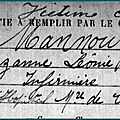 Victime c
TIE À REMPLIR PAR LE C
Mannou
zanne Léonie
Infirmière
Hôpital Mre de